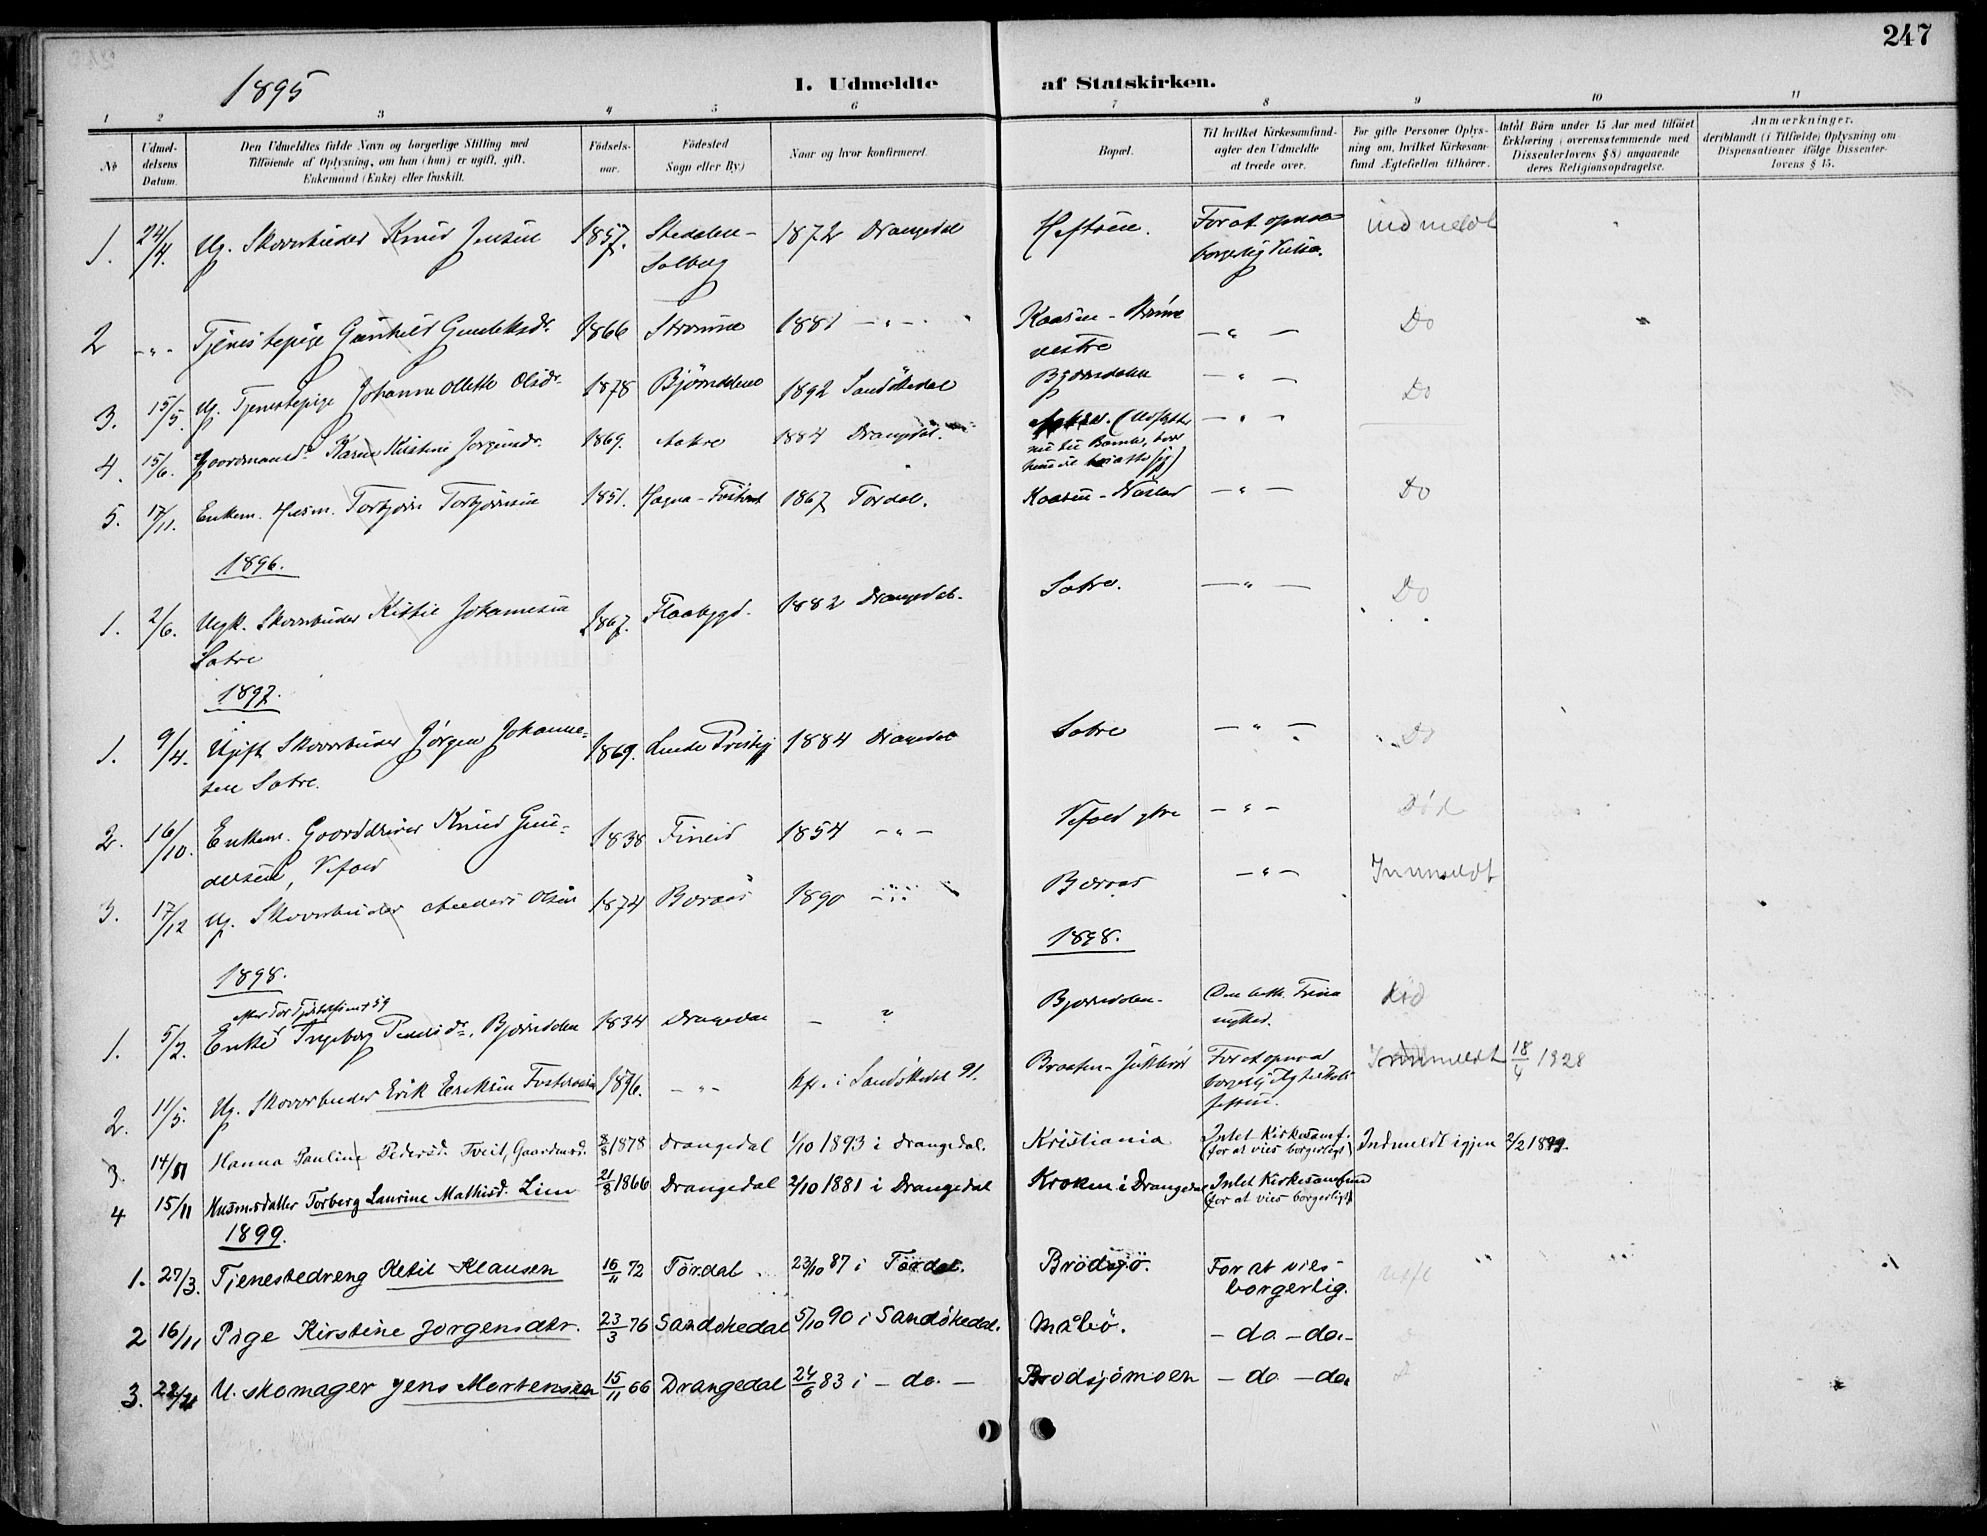 247
1895
1. Udmeldte af Statskirken.
1 2 3 4 5 6 7 8 9 10 11
No
Udmeldelsens Datum.
Den Udmeldtes fulde Navn og borgerlige Stilling med
Tilføiende af Oplysning, om han (hun) er ugift, gift.
Enkemand (Enke) eller fraskilt.
Fødsels-
aar.
Fødested
Sogn eller By)
Naar og hvor konfirmeret.
Bopæl.
Til hvilket Kirkesamfund-
agter den Udmeldte
at træde over.
For gifte Personer Oplys-
ning om, hvilket Kirkesam-
fund Ægtefællen tilhører.
Antal Børn under 15 Aar med tilføiet
Erklæring (overensstemmende med
Dissenterlovens § 8) angaaende
deres Religionsopdragelse.
Anmærkninger,
deriblandt (i Tilfælde) Oplysning om
Dispensationer ifølge Dissenter-
lovens § 15.
1. 24/4. Ug. Skovarbeider Knud Jensen 1857. Stedalen- 1872 Drangedal Heftøen. For at opnaa indmeldt
Solberg borgerlig Vielse.
2 -"- Tjenestepige Gunhild 1866 Strømme 1881 -"- Kaasen - Strømme -"- Do
vestre
3. 15/5. Ug. Tjenestepige Johanne Olette Olsdr. 1878 Bjørndalen 1892 Sandökedal Bjørndalen -"- Do
4. 15/6. Gaardmandsd. Karen Kristine Jørgensdr. 1869. Aakre 1884 Drangedal. -"-
5. 17/11. Enkem. Husm. Torbjørn Torbjørnsen 1851. 1867 Tørdal. Kaasen - -"- Do
1896.
1. 2/6. Ugift. Skovarbeider Kittil Johannesen 1867. Flaabygd. 1882 Drangedal. Sætre. -"- Do
Sætre
1897.
1. 9/4. Ugift Skovarbeider Jørgen Johanne- 1869. Lunde Prestegj 1884 Drangedal Sætre -"- Do
sen Sætre.
2. 16/10. Enkem. Gaarddriver Knud Gun- 1838 Fineid 1854 -"- Vefald ytre -"- Død
dersen, Vefald
3. 17/12 Ug. Skovarbeider Anders Olsen 1874 Boraas 1890 -"- Boraas -"- Innmeldt
1898. 1898.
1. 5/2. Enke Ingeborg Pedersdr. Bjørndalen 1834 Drangedal - ? Bjørndalen. Den luth. Frima Død
nighed.
2. 11/5. Ug. Skovarbeider Erik Eriksen 1876. -"- Kfr. i Sandökedal 91. Braaten- For at opnaa Innmeldt 18/4 1928
borgerlig
3 14/11 Hanna Pauline Pedersd. Tveit, Gaardmsd. 8/8 1878 Drangedal 1/10 1893 i Drangedal. Kristiania Intet Kirkesamf. Indmeldt igjen 2/2 1899.
(for at vies borgerligt)
4 15/11 Husmsdatter Torberg Laurine Mathisd. Lien 21/8 1866 Drangedal 2/10 1881 i Drangedal Kroken i Drangedal Intet Kirkesamfund
(for at vies borgerligt)
1899.
1. 27/3. Tjenestedreng Ketil Klausen 16/11 72 Tørdal. 23/10 87 i Tørdal. Brödsjö. For at vies
borgerlig.
2 16/11 Pige Kirstine Jorgensdtr. 23/3 76 Sandökedal 5/10 90 i Sandökedal. Måbö. - do - do. -
3. 22/ U. skomager Jens Mortensen 15/11 66 Drangedal 24/6 83 i - do. - Brodsjömoen - do - do.